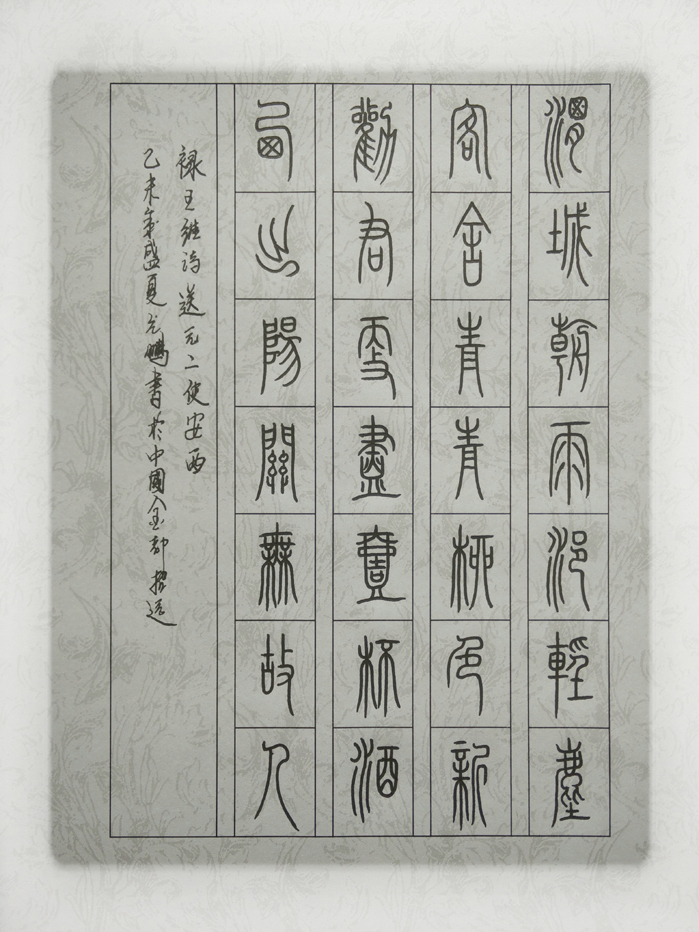 渭城朝雨浥輕塵
客舍青青柳色新
勸君更盡壹杯酒
西出陽關無故人
禄王維詩送元二使安西
乙未年盛夏鵬書於中國金都招远